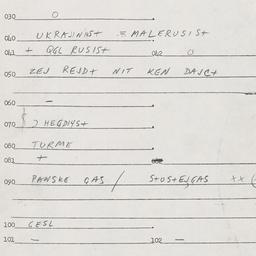 030 O
040 UKRAJINIST = MALERUSIST
041 + GGL RUSIST 042 O
050 ZEJ REJDT NIT KEN DAJCT
060 —
070
080 TURME
081 +
090 PANSKE GAS / STOSTEJGAS xx (
100 GESL
101 — 102 —